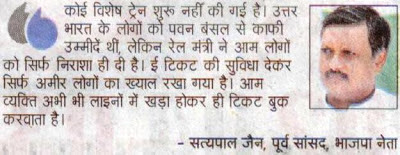 कोई विशेष ट्रेन शुरू नहीं की गई है। उत्तर
भारत के लोगों को पवन बंसल से काफी
उम्मीदें थी, लेकिन रेल मंत्री ने आम लोगों
को सिर्फ निराशा ही दी है। ई टिकट की सुविधा देकर
सिर्फ अमीर लोगों का ख्याल रखा गया है। आम
व्यक्ति अभी भी लाइनों में खड़ा होकर ही टिकट बुक
करवाता है।
- सत्यपाल जैन, पूर्व सांसद, भाजपा नेता